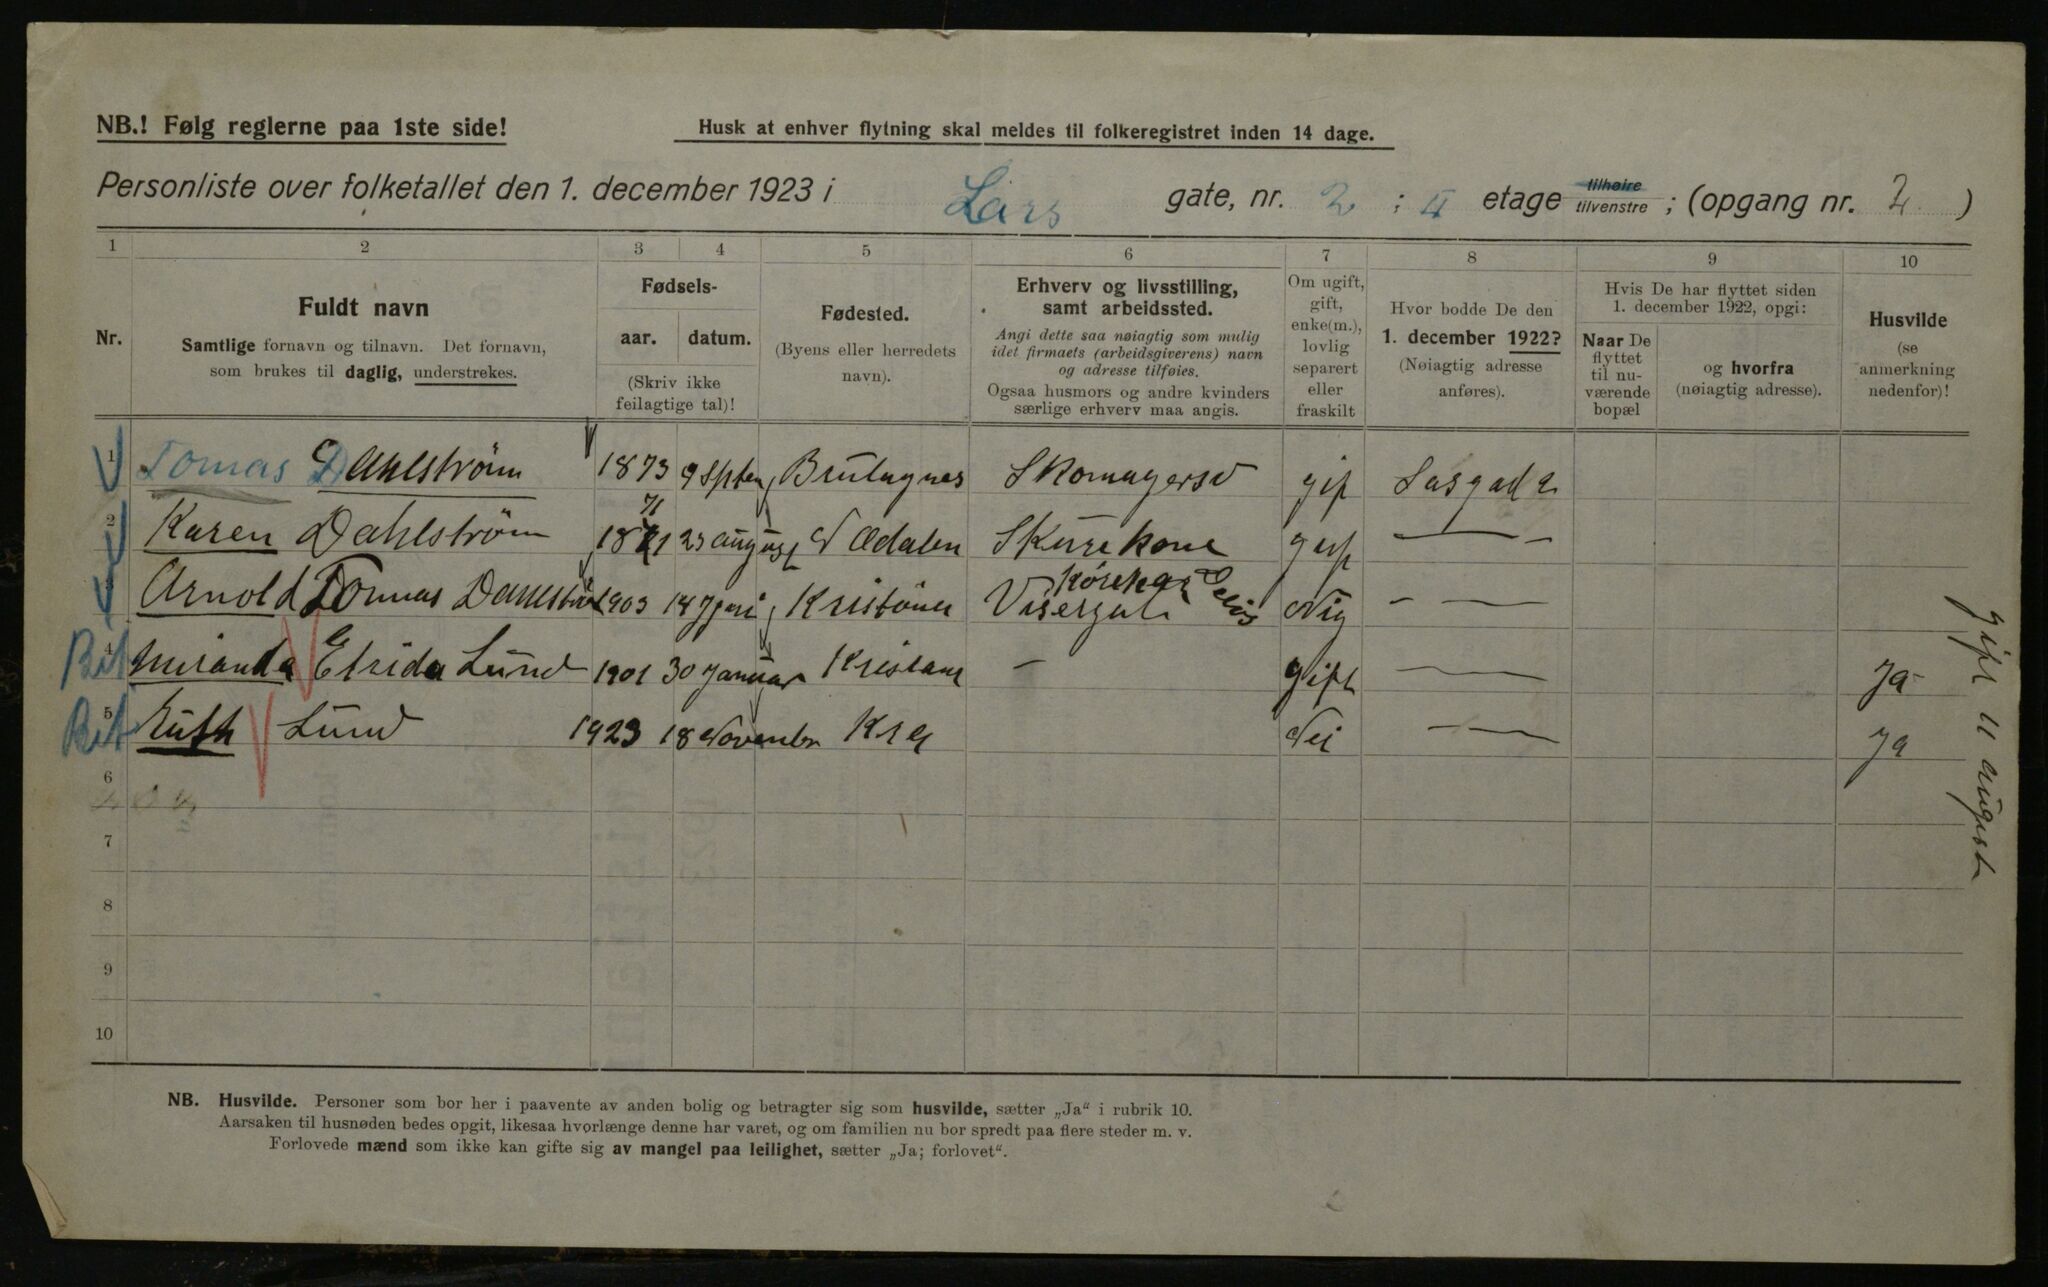 NB.! Følg reglerne paa 1ste side!
Husk at enhver flytning skal meldes til folkeregistret inden 14 dage.
Personliste over folketallet den 1. december 1923 i Lars gate, nr. 2 ; II etage tilhøire tilvenstre ; (opgang nr. 2 )
1 2 3 4 5 6 7 8 9 10
Nr.
Fuldt navn
Samtlige fornavn og tilnavn. Det fornavn,
som brukes til daglig, understrekes.
Fødsels-
aar. datum.
(Skriv ikke
feilagtige tal)!
Fødested.
(Byens eller herredets
navn).
Erhverv og livsstilling,
samt arbeidssted.
Angi dette saa nøiagtig som mulig
idet firmaets (arbeidsgiverens) navn
og adresse tilføies.
Ogsaa husmors og andre kvinders
særlige erhverv maa angis.
Om ugift,
gift,
enke(m.),
lovlig
separert
eller
fraskilt
Hvor bodde De den
1. december 1922?
(Nøiagtig adresse
anføres).
Hvis De har flyttet siden
1. december 1922, opgi:
Naar De
flyttet
til nu-
værende
bopæl
og hvorfra
(nøiagtig adresse).
Husvilde
(se
anmerkning
nedenfor)!
1 Tomas Dahlström 1873 9 Spten Brulagnes Skomagersv gif Lasgad 2
71
2 Karen Dahlström 1871 23 august Skurekone — —
3 Arnold Tomas Dahlström 1903 14 — —
Bit 4 Miranda Elrida Lund 1901 30 Januar Kristans — gift — Ja
Bit 5 Ruth Lund 1923 18 November Kra Nei — Ja
gift 11 august
6
7
8
9
10
NB. Husvilde. Personer som bor her i paavente av anden bolig og betragter sig som husvilde, sætter „Ja“ i rubrik 10.
Aarsaken til husnøden bedes opgit, likesaa hvorlænge denne har varet, og om familien nu bor spredt paa flere steder m. v.
Forlovede mænd som ikke kan gifte sig av mangel paa leilighet, sætter „Ja; forlovet“.